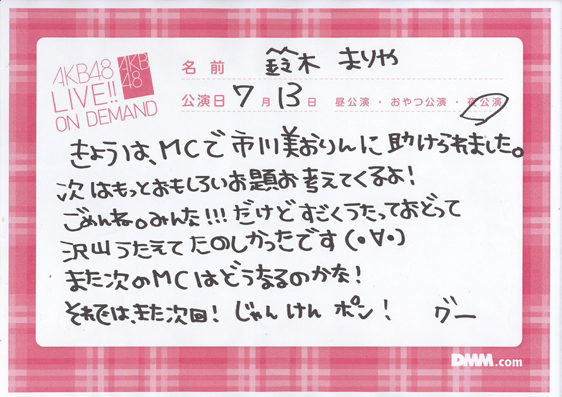 AKB48
LIVE!!
ON DEMAND
AKB
48
名前 鈴木 まりや
公演日 7月13日 昼公演・おやつ公演・夜公演
きょうは、MCで市川美おりんに助けられました。
次はもっとおもしろいお題お考えてくるよ!
ごめんね。みんな!!!だけどすごくうたっておどって
沢山うたえてたのしかったです(•∀•)
また次のMCはどうなるのかな!
それでは、また次回!じゃんけんポン! グー
DMM.com